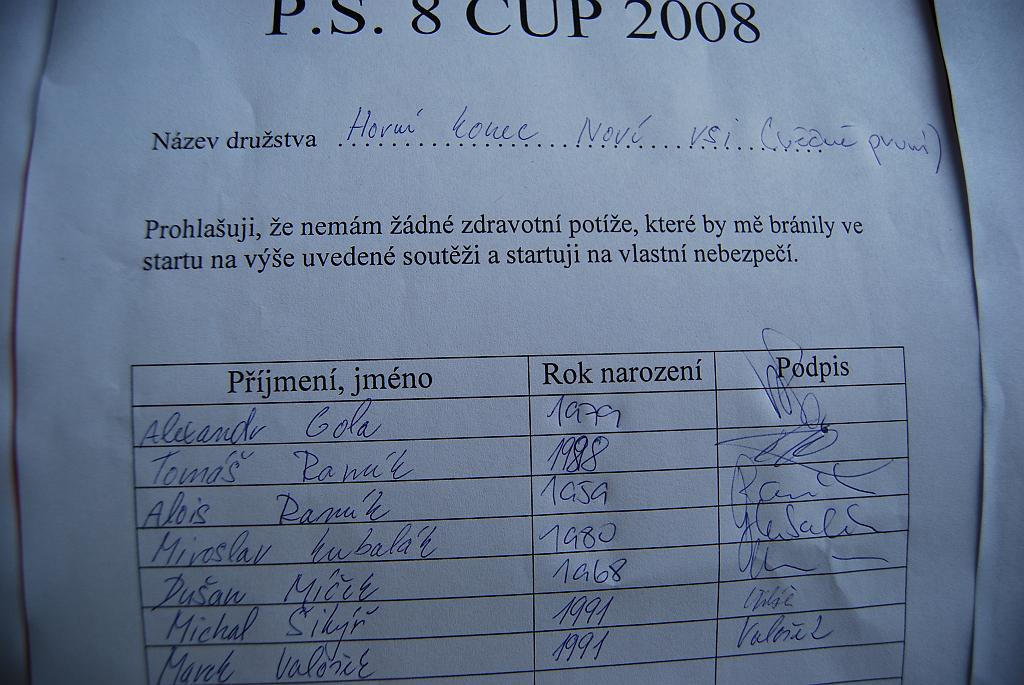 P.S. 8 CUP 2008
Název družstva Horní konec Nové vsi (věčně první)
Prohlašuji, že nemám žádné zdravotní potíže, které by mě bránily ve
startu na výše uvedené soutěži a startuji na vlastní nebezpečí.
Příjmení, jméno Rok narození Podpis
Alexandr Gola 1979
Tomáš 1988
Alois 1959
Miroslav Kubalák 1980
Dušan Míček 1968
Michal Šikýř 1991
Marek Valošek 1991 Valošek